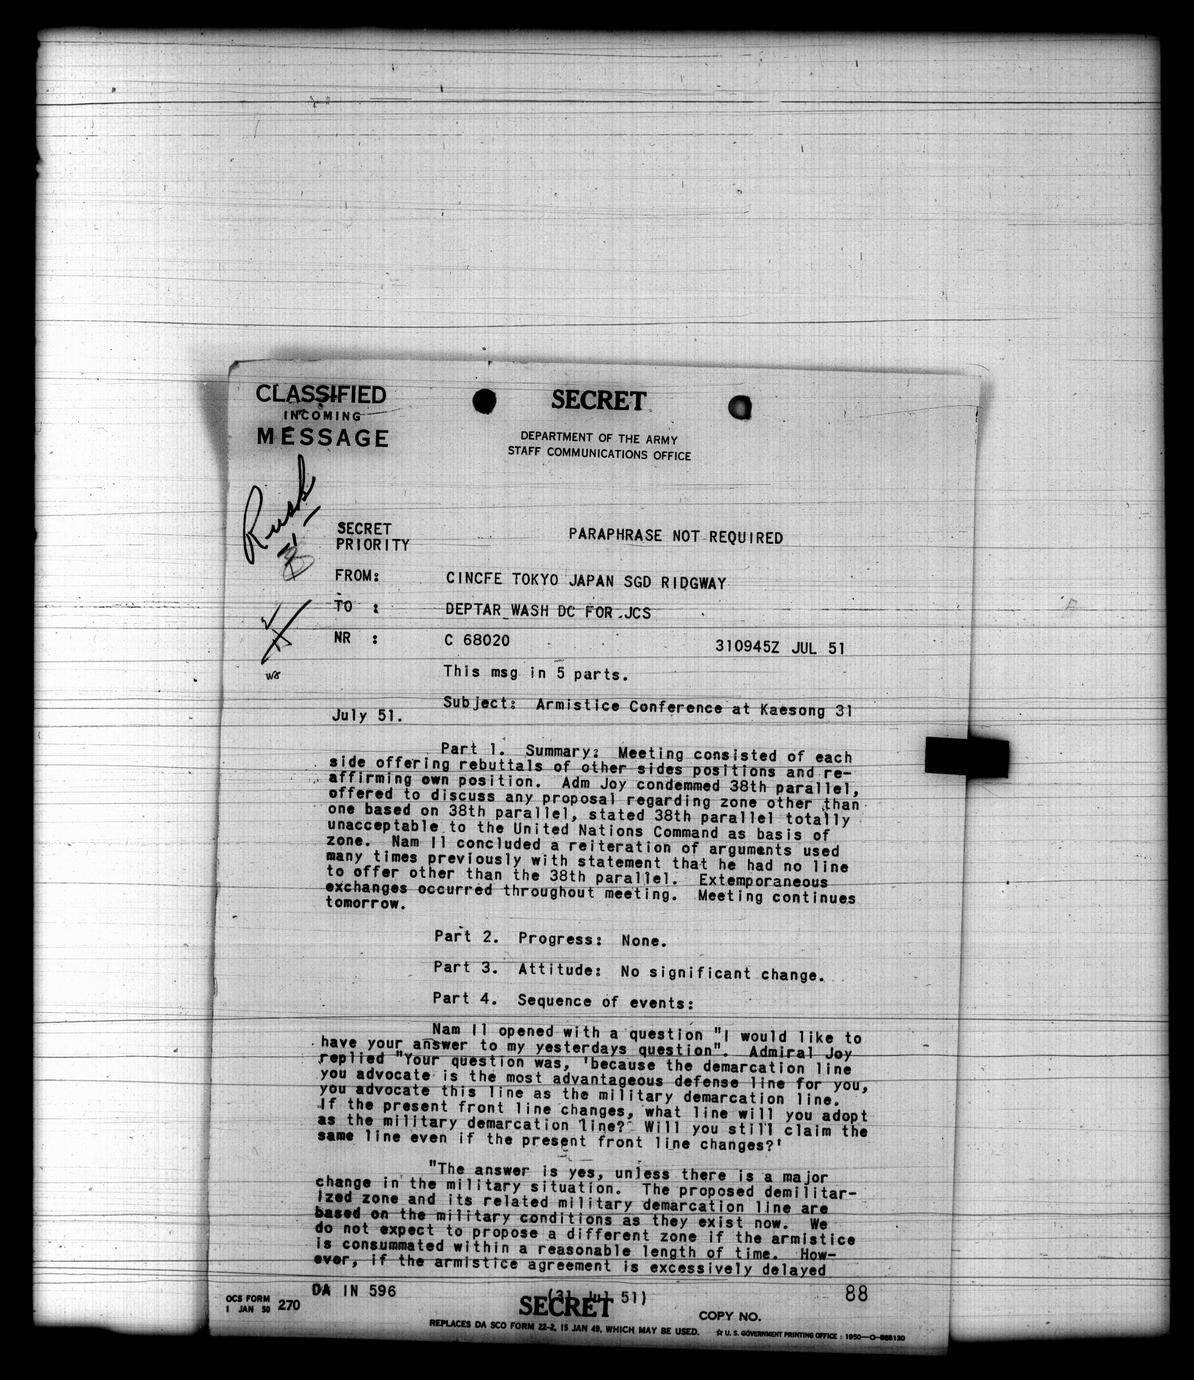 CLASSIFIED
INCOMING
MESSAGE
SECRET
DEPARTMENT OF THE ARMY
STAFF COMMUNICATIONS OFFICE
Rusk
SECRET
PRIORITY
PARAPHRASE NOT REQUIRED
FROM: CINCFE TOKYO JAPAN SGD RIDGWAY
TO : DEPTAR WASH DC FOR JCS
NR : C 68020 310945Z JUL 51
This msg in 5 parts.
Subject: Armistice Conference at Kaesong 31
July 51.
Part 1. Summary: Meeting consisted of each
side offering rebuttals of other sides positions and re-
affirming own position. Adm Joy condemmed 38th parallel,
offered to discuss any proposal regarding zone other than
one based on 38th parallel, stated 38th parallel totally
unacceptable to the United Nations Command as basis of
zone. Nam Il concluded a reiteration of arguments used
many times previously with statement that he had no line
to offer other than the 38th parallel. Extemporaneous
exchanges occurred throughout meeting. Meeting continues
tomorrow.
Part 2. Progress: None.
Part 3. Attitude: No significant change.
Part 4. Sequence of events:
Nam Il opened with a question "I would like to
have your answer to my yesterdays question". Admiral Joy
replied "Your question was, 'because the demarcation line
you advocate is the most advantageous defense line for you,
you advocate this line as the military demarcation line.
If the present front line changes, what line will you adopt
as the military demarcation line? Will you still claim the
same line even if the present front line changes?'
"The answer is yes, unless there is a major
change in the military situation. The proposed demilitar-
ized zone and its related military demarcation line are
based on the military conditions as they exist now. We
do not expect to propose a different zone if the armistice
is consummated within a reasonable length of time. How-
ever, if the armistice agreement is excessively delayed
DA IN 596 (31 Jul 51) 88
OCS FORM
1 JAN 50 270
SECRET
COPY NO.
REPLACES DA SCO FORM 22-2, 15 JAN 49, WHICH MAY BE USED.
☆ U. S. GOVERNMENT PRINTING OFFICE : 1950—O-